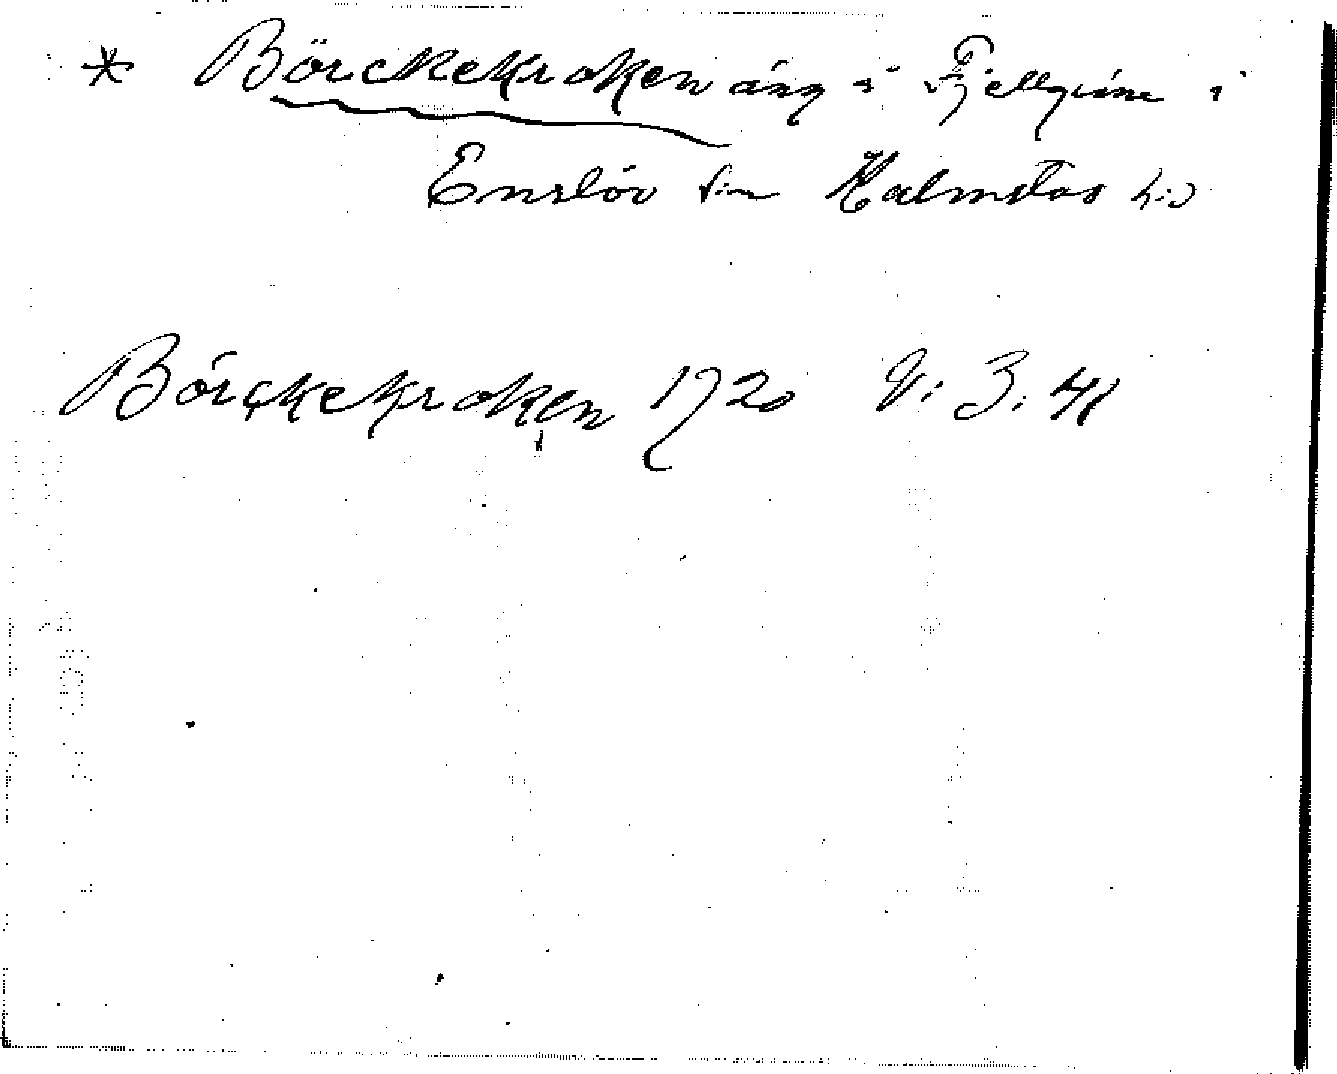 * Börckekroken äng i Fjellgium i
Enslöv sn Halmstad hd
Börckekroken 1720 V: 3: 41